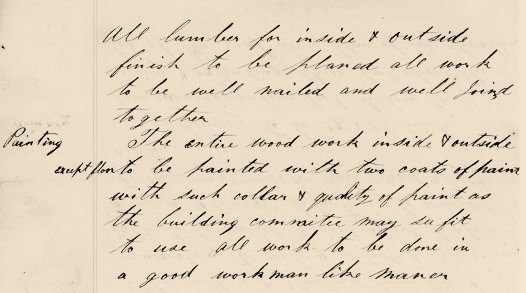 All lumber for inside & outside
finish to be planed all work
to be well nailed and well joind
together
Painting The entire wood work inside & outside
except floor to be painted with two coats of paint
with such collar & quality of paint as
the building commitee may su fit
to use all work to be done in
a good workman like maner